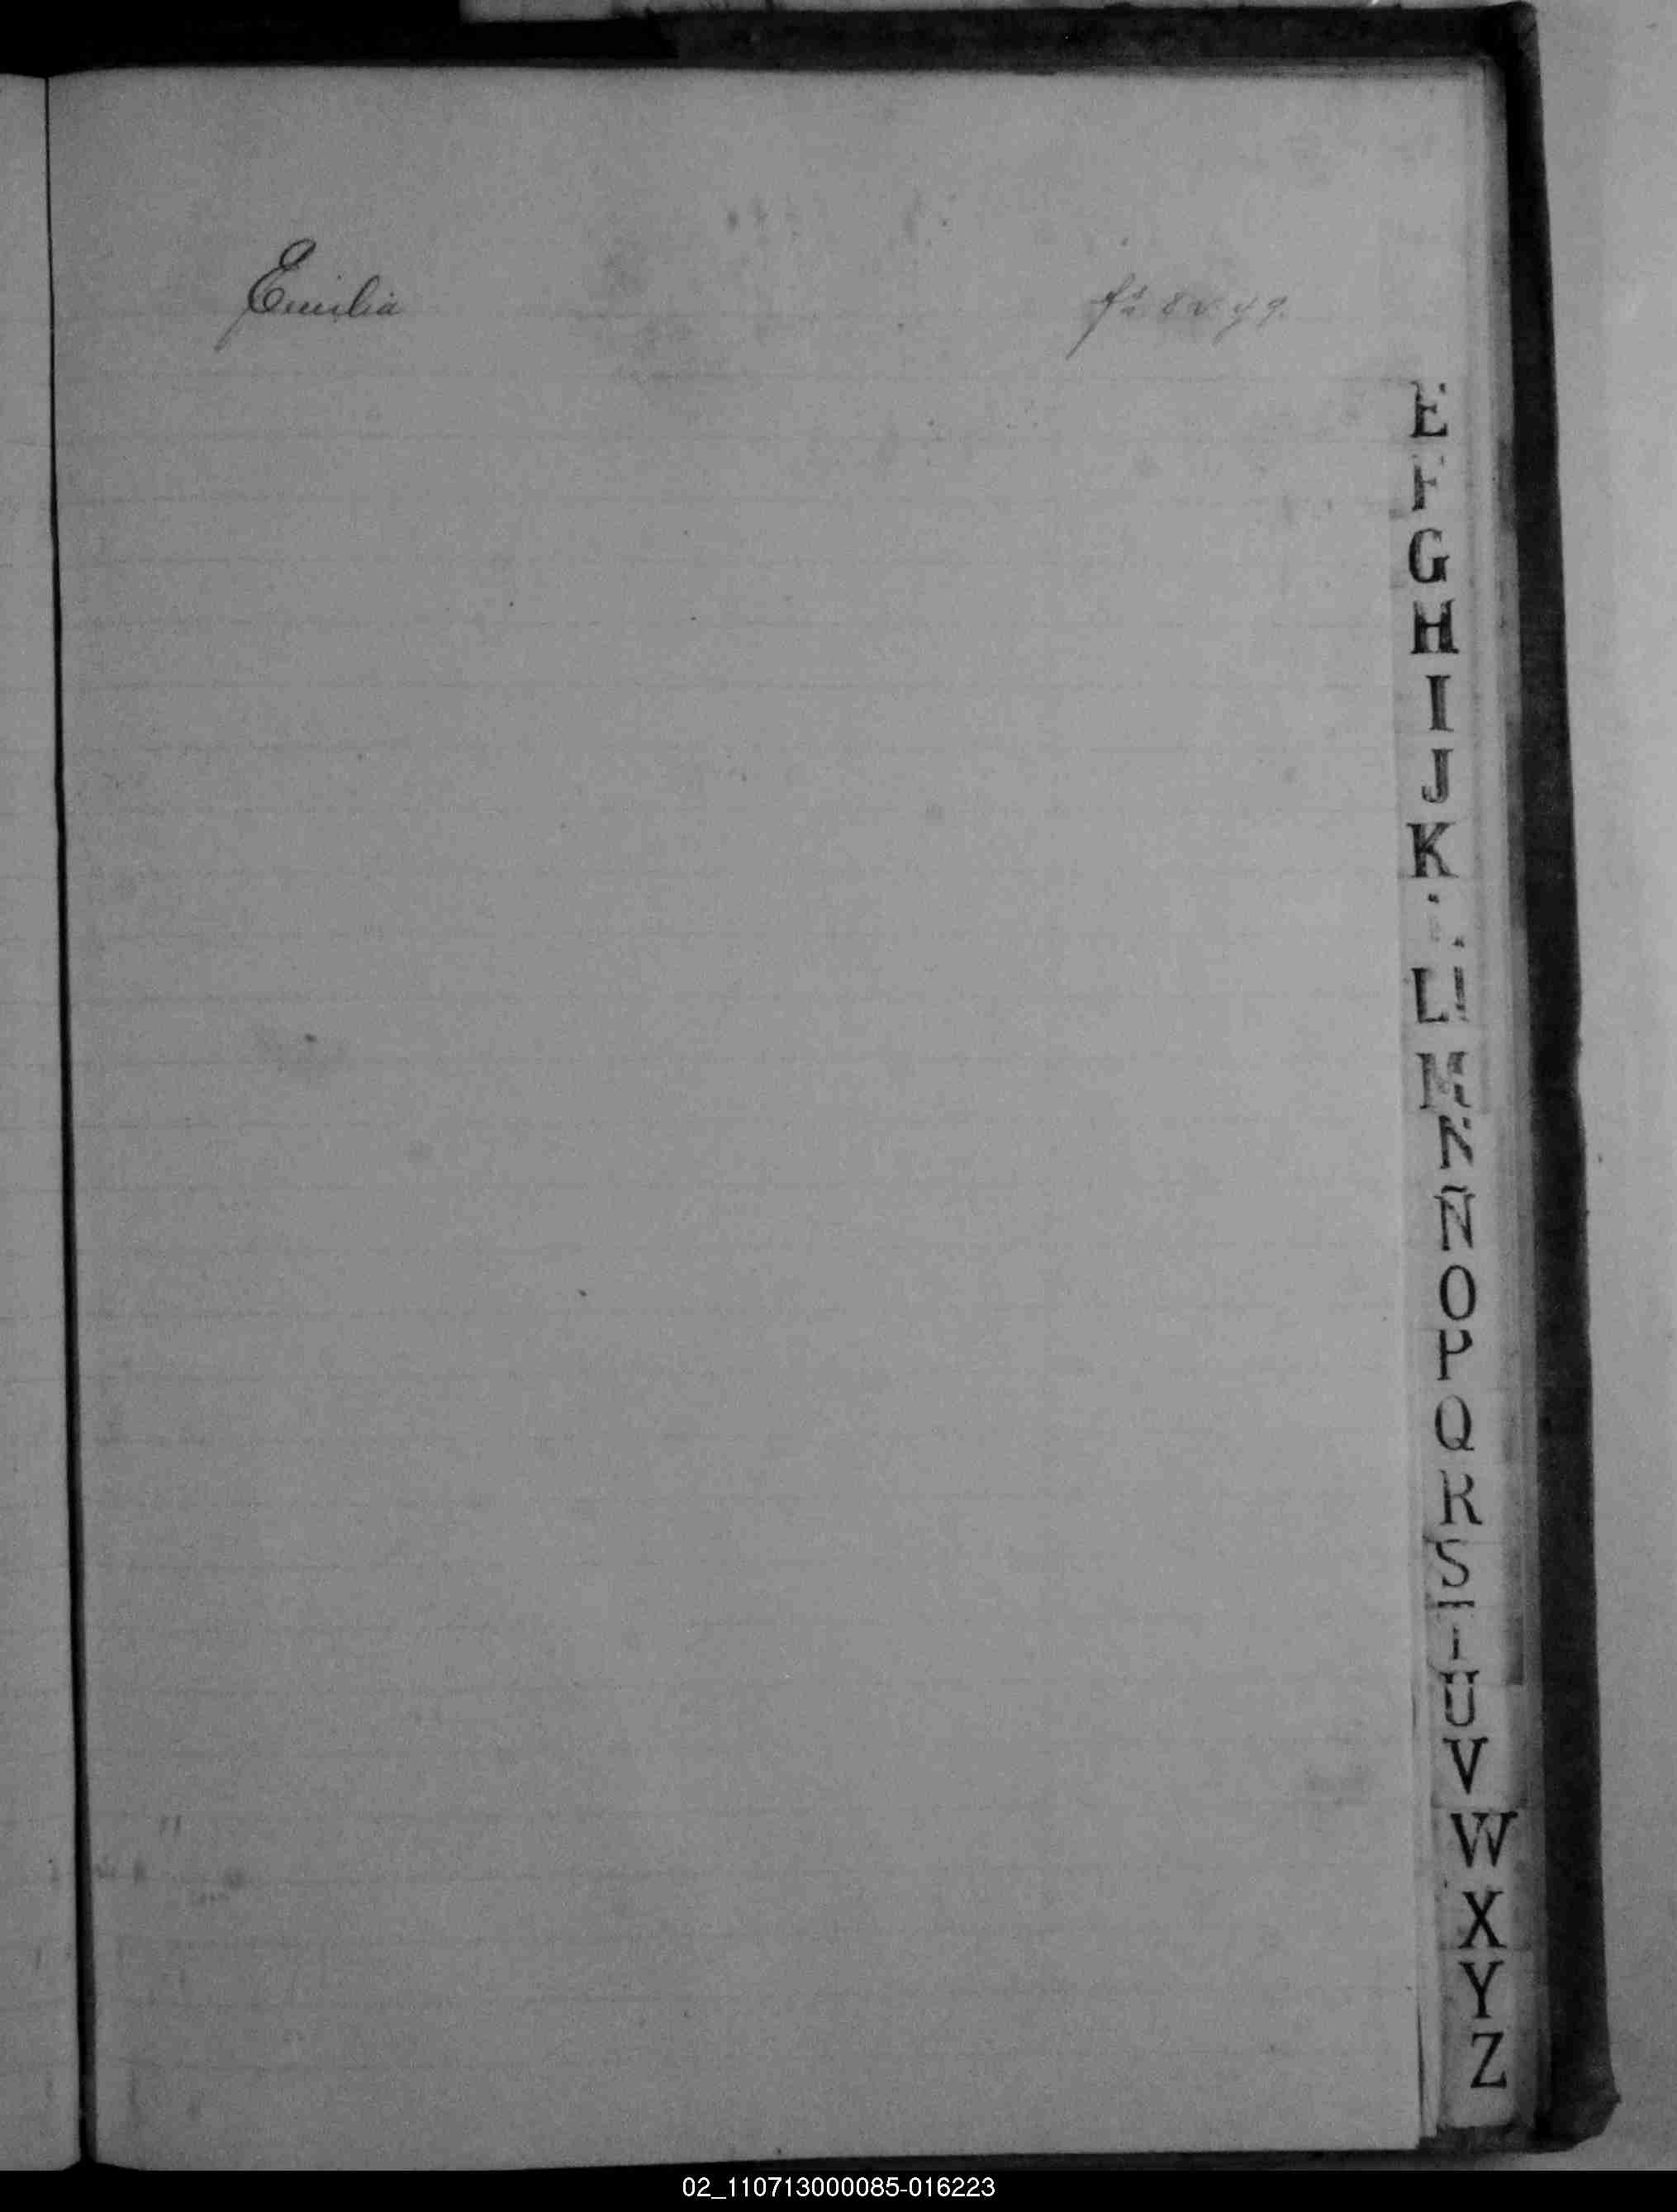 Emilia fs. 8 v. y 9.
E
F
G
H
I
J
K
L
M
N
Ñ
O
P
Q
R
S
T
U
V
W
X
Y
Z
02_110713000085-016223